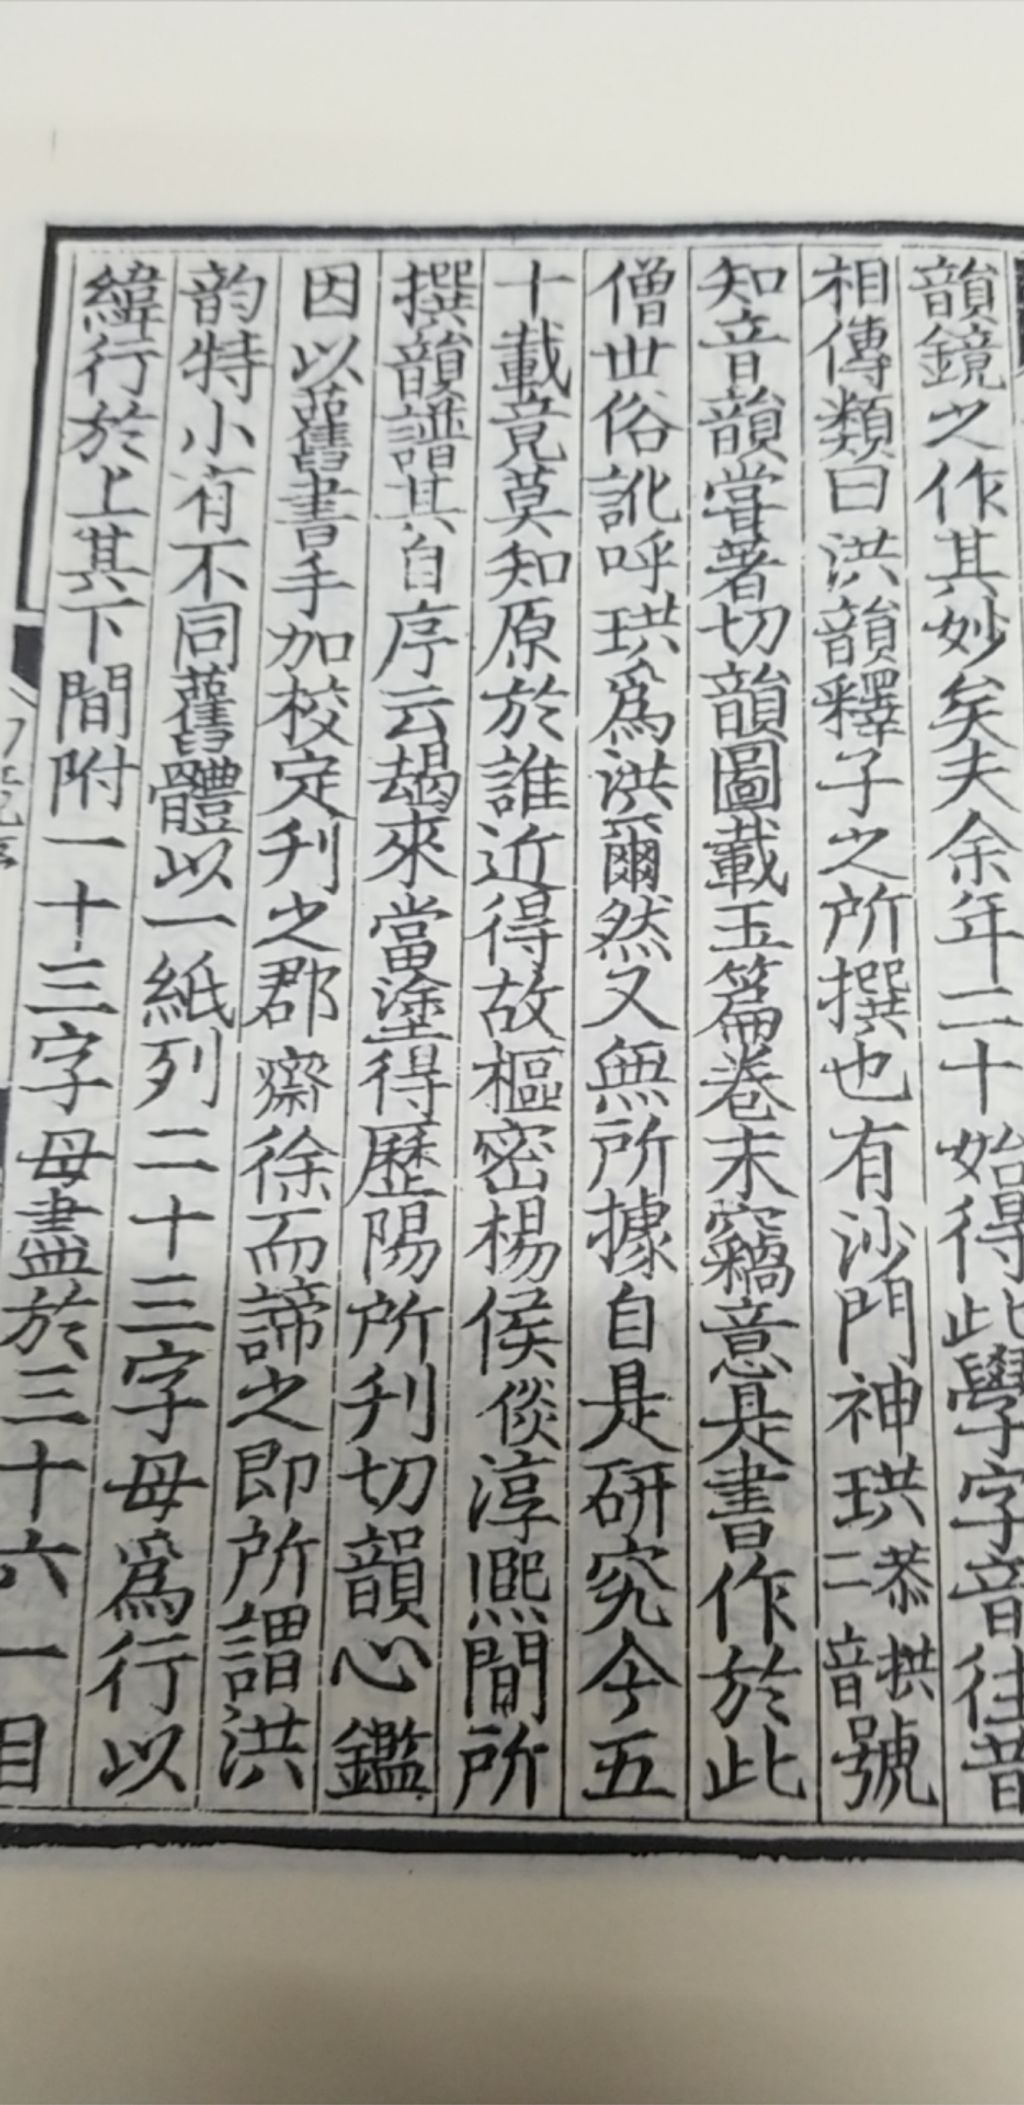 韻鏡之作其妙矣夫余年二十始得此學字音往昔
相傳類曰洪韻釋子之所撰也有沙門神珙恭拱二音號
知音韻嘗著切韻圖載玉篇卷末竊意是書作於此
僧世俗訛呼珙爲洪爾然又無所據自是研究今五
十載竟莫知原於誰近得故樞密楊侯倓淳熙間所
撰韻譜其自序云朅來當塗得歷陽所刋切韻心鑑
因以舊書手加校定刋之郡齋徐而諦之即所謂洪
韵特小有不同舊體以一紙列二十三字母爲行以
緯行於上其下間附一十三字母盡於三十六一目